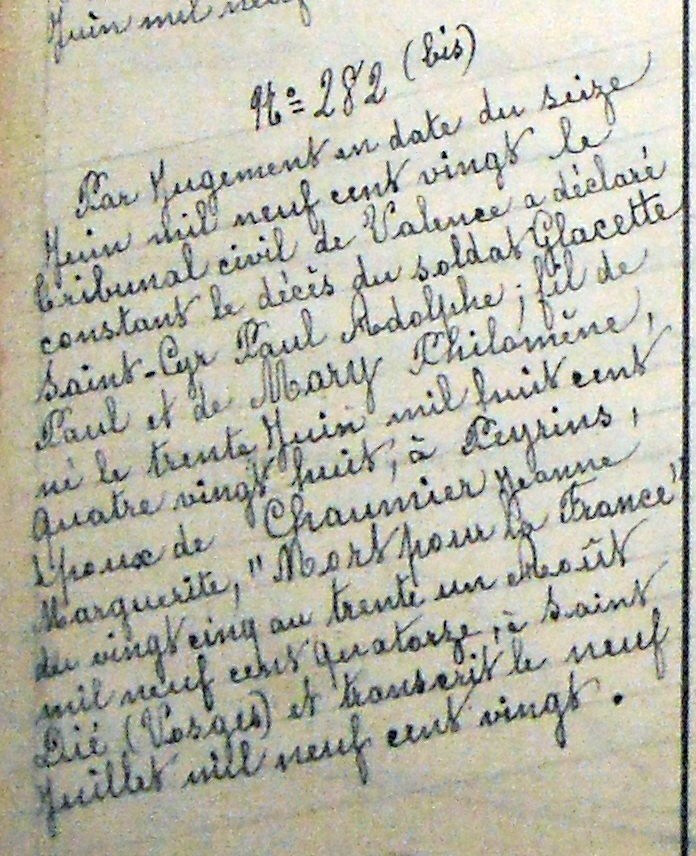 Juin mil neuf
N° 282 (bis)
Par Jugement en date du seize
Juin mil neuf cent vingt le
tribunal civil de Valence a déclaré
constant le décès du soldat Glacette
Saint-Cyr Paul Adolphe ; fil de
Paul et de Mary Philomène,
né le trente Juin mil huit cent
quatre vingt huit, à Peyrins,
époux de Chaumier Jeanne
Marguerite, "Mort pour la France"
du vingt cinq au trente un Août
mil neuf cent quatorze, à Saint
Dié (Vosges) et transcrit le neuf
Juillet mil neuf cent vingt.